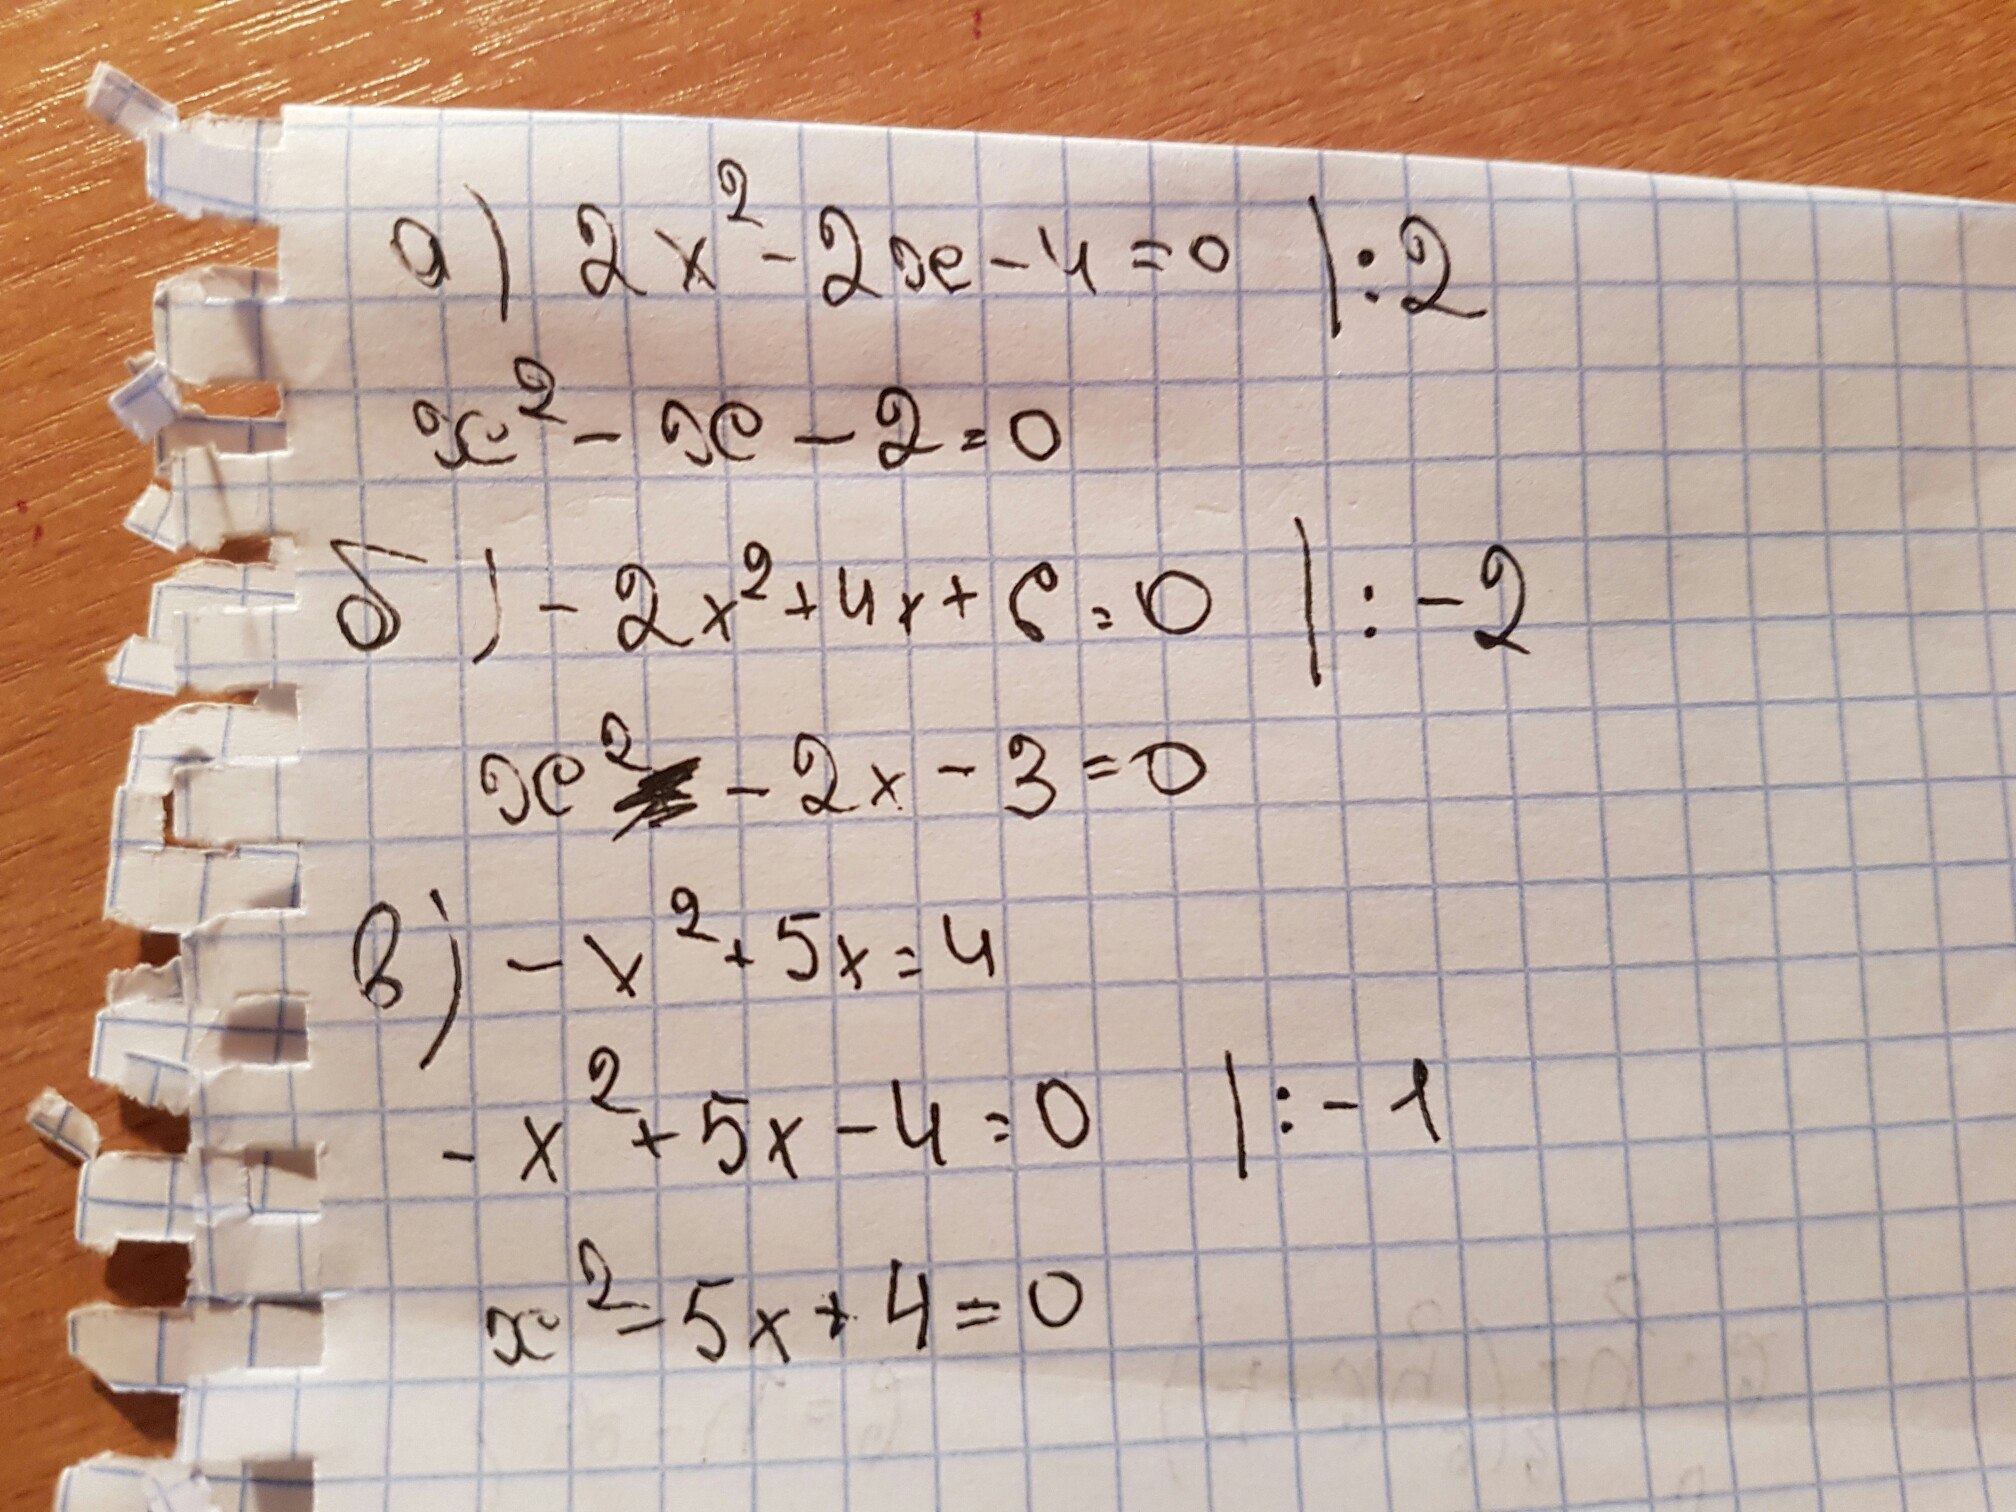 а) 2x² - 2x - 4 = 0 |:2
x² - x - 2 = 0
б) - 2x² + 4x + 6 = 0 |: -2
x² - 2x - 3 = 0
в) - x² + 5x = 4
- x² + 5x - 4 = 0 |: -1
x² - 5x + 4 = 0